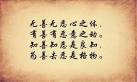 无善无恶心之体，
有善有恶意之动。
知善知恶是良知，
为善去恶是格物。